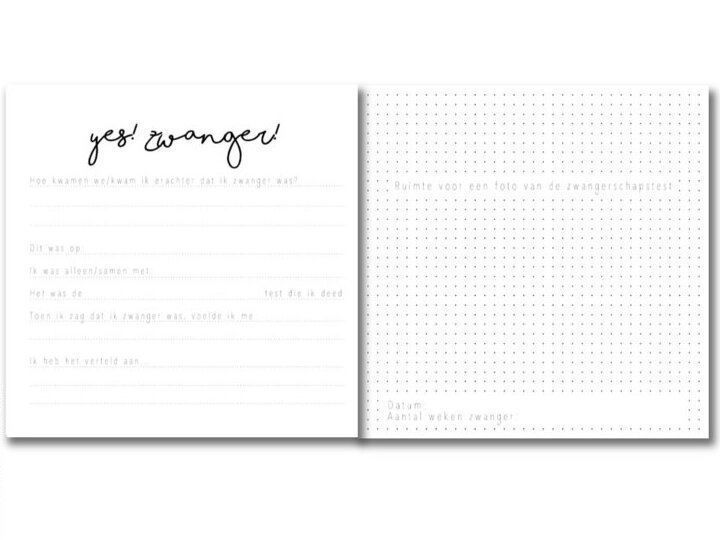 yes! zwanger!
Hoe kwamen we/kwam ik erachter dat ik zwanger was?
Dit was op:
Ik was alleen/samen met:
Het was de test die ik deed
Toen ik zag dat ik zwanger was, voelde ik me
Ik heb het verteld aan
Ruimte voor een foto van de zwangerschapstest
Datum:
Aantal weken zwanger: